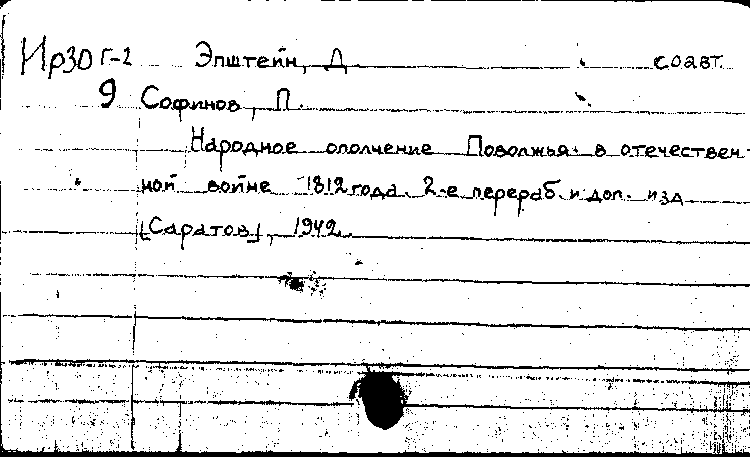 Ир30 Г-2 Эпштейн, Д. соавт.
9 Софинов, П.
Народное ополчение Поволжья в отечествен-
ной войне 1812 года. 2-е перераб. и доп. изд
[Саратов], 1942.